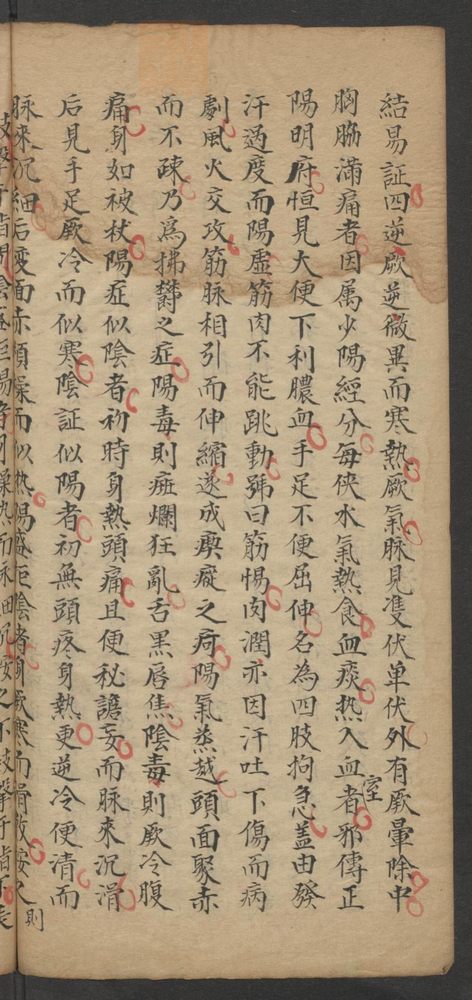 結易証四逆厥逆微異而寒熱厥氣脉見隻伏单伏外有厥暈除中
胸胁滿痛者因属少陽經分每侠水氣熱食血痰热入血室者邪傳正
陽明府恒見大便下利膿血手足不便屈伸名為四肢拘急盖由發
汗過度而陽虚筋肉不能跳動號曰筋惕肉潤亦因汗吐下傷而病
劇風火交攻筋脉相引而伸縮遂成瘈瘲之疴陽氣蒸越頭面聚赤
而不疎乃爲拂欝之症陽毒則㾗爛狂亂舌黑唇焦陰毒則厥冷腹
痛身如被杖陽症似陰者初時身熱頭痛且便秘譫妄而脉來沉滑
后見手足厥冷而似寒陰証似陽者初無頭疼身熱更逆冷便清而
脉來沉細后变面赤煩燥而似热陽盛拒陰者身厥寒而滑数按之則